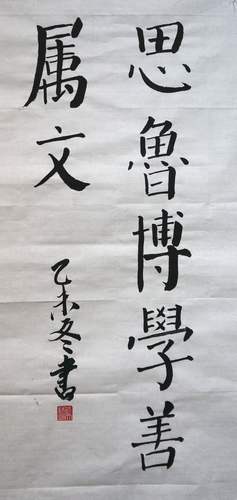 思魯博學善
属文
乙未冬書